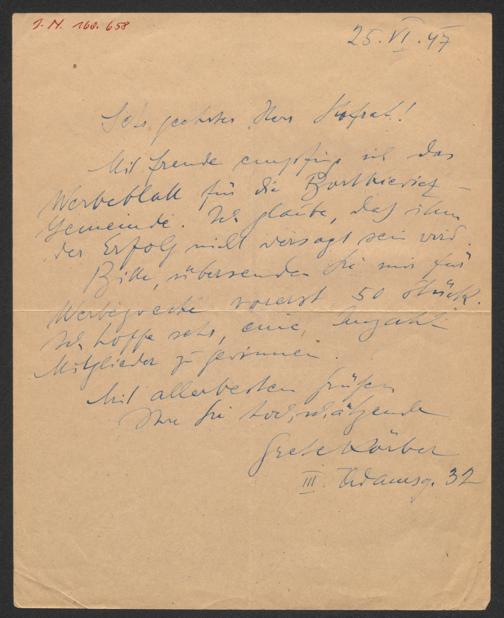 I. N. 160.658
25. VI. 47
Sehr geehrter Herr Hofrat!
Mit Freude empfing ich das
Werbeblatt für die
Gemeinde. Ich glaube, daß ihm
der Erfolg nicht versagt sein wird.
Bitte, übersenden Sie mir für
Werbezwecke vorerst 50 Stück.
Ich hoffe sehr, eine Anzahl
Mitglieder zu gewinnen.
Mit allerbesten Grüßen
Ihre Sie hochschätzende
Grete Körber
III. Adamsg. 32